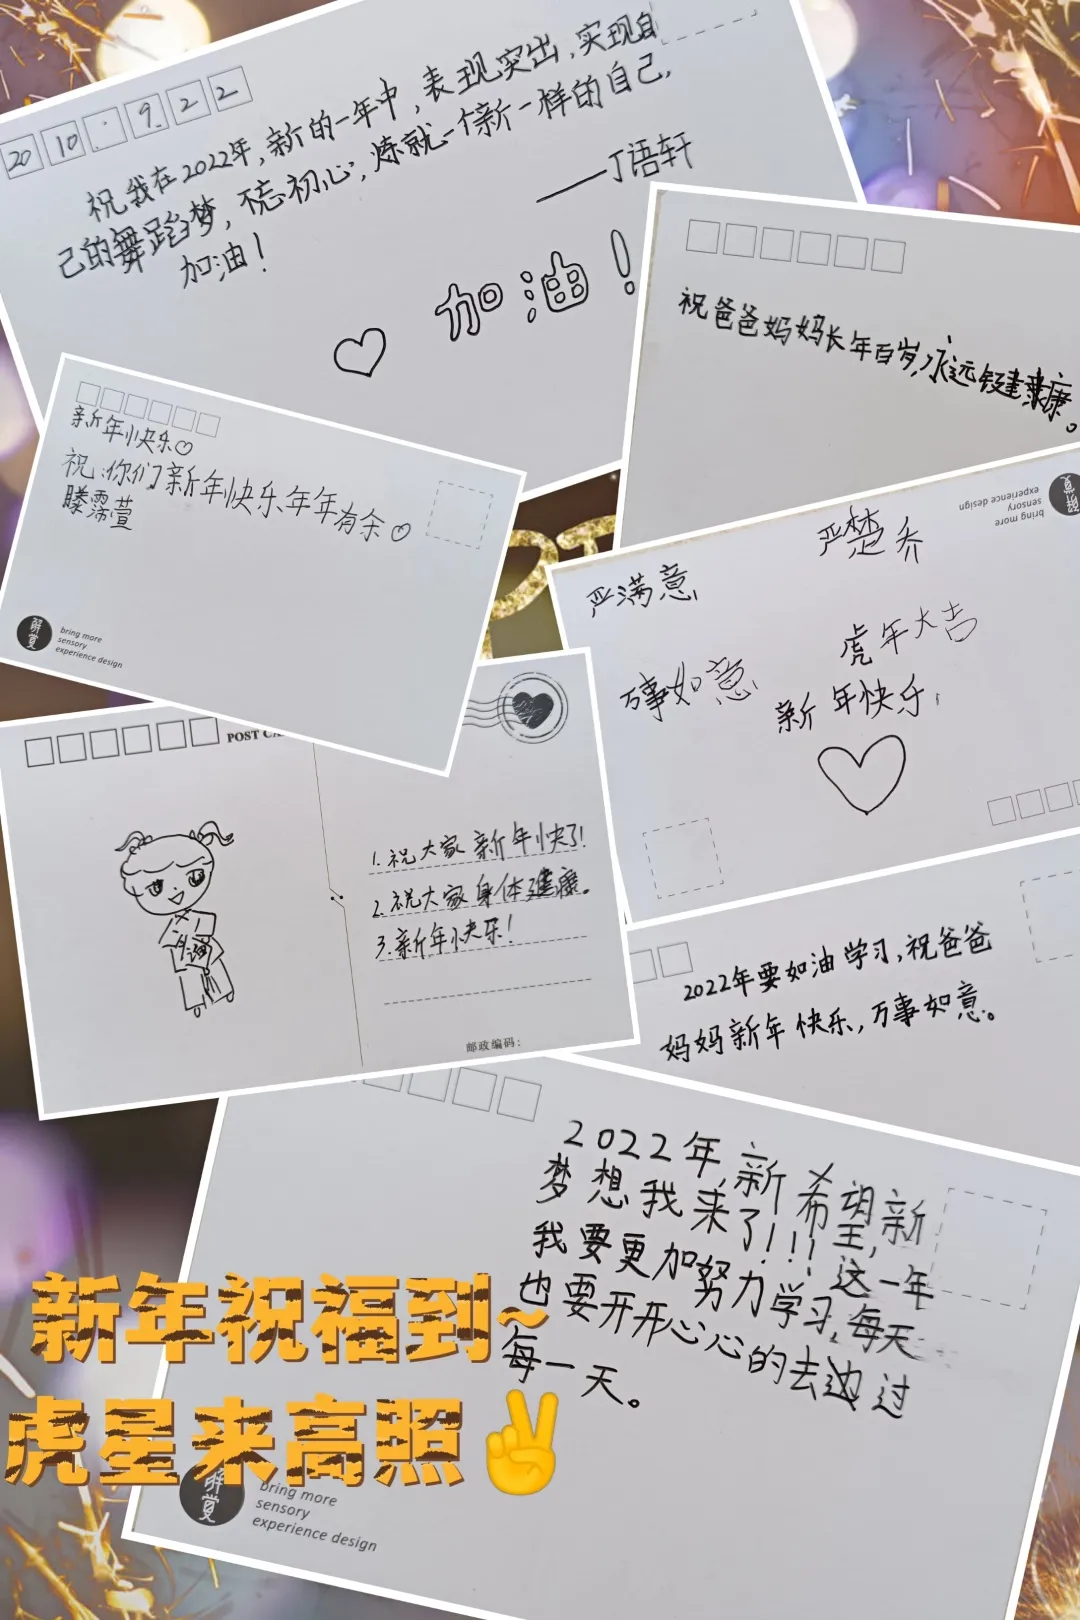 20 10 . 9. 2 2
祝我在2022年,新的一年中,表现突出,实现自
己的舞蹈梦,不忘初心,炼就一个新一样的自己,
加油!
——丁语轩
加油!
祝爸爸妈妈长年百岁,永远健康。
新年快乐
祝:你们新年快乐年年有余
滕霈萱
解觉
bring more
sensory
experience design
解觉
bring more
sensory
experience design
严楚乔
严满意
虎年大吉
万事如意
新年快乐
POST CA
1.祝大家新年快了!
2.祝大家身体健康。
3.新年快乐!
邮政编码:
2022年要如油学习,祝爸爸
妈妈新年快乐,万事如意。
2022年,新希望,新
梦想我来了!!!这一年
我要更加努力学习,每天
也要开开心心的去过
每一天。
新年祝福到~
虎星来高照✌
解觉
bring more
sensory
experience design